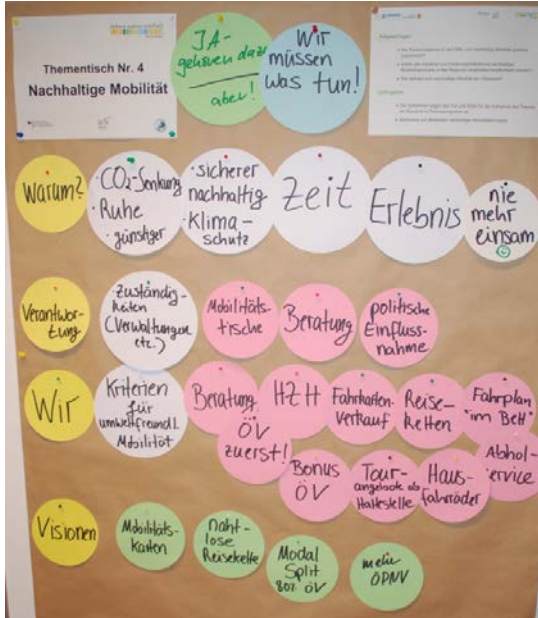 Thementisch Nr. 4
Nachhaltige Mobilität
JA-
gehören dazu
aber!
Wir
müssen
was tun!
Warum?
· CO₂-Senkung
· Ruhe
· günstiger
· sicherer
nachhaltig
· Klima-
schutz
Zeit
Erlebnis
nie
mehr
einsam
Verantwor-
tung
Zuständig-
keiten
(Verwaltungen
etc.)
Mobilitäts-
tische
Beratung
politische
Einfluss-
nahme
Wir
Kriterien
für
umweltfreundl.
Mobilität
Beratung
HZH
Fahrkarten-
verkauf
Reise-
ketten
Fahrplan
"im Bett"
ÖV
zuerst!
Bonus
ÖV
Tour-
angebote ab
Haltestelle
Haus-
fahrräder
Abhol-
service
Visionen
Mobilitäts-
karten
naht-
lose
Reisekette
Modal
Split
80% ÖV
mehr
ÖPNV